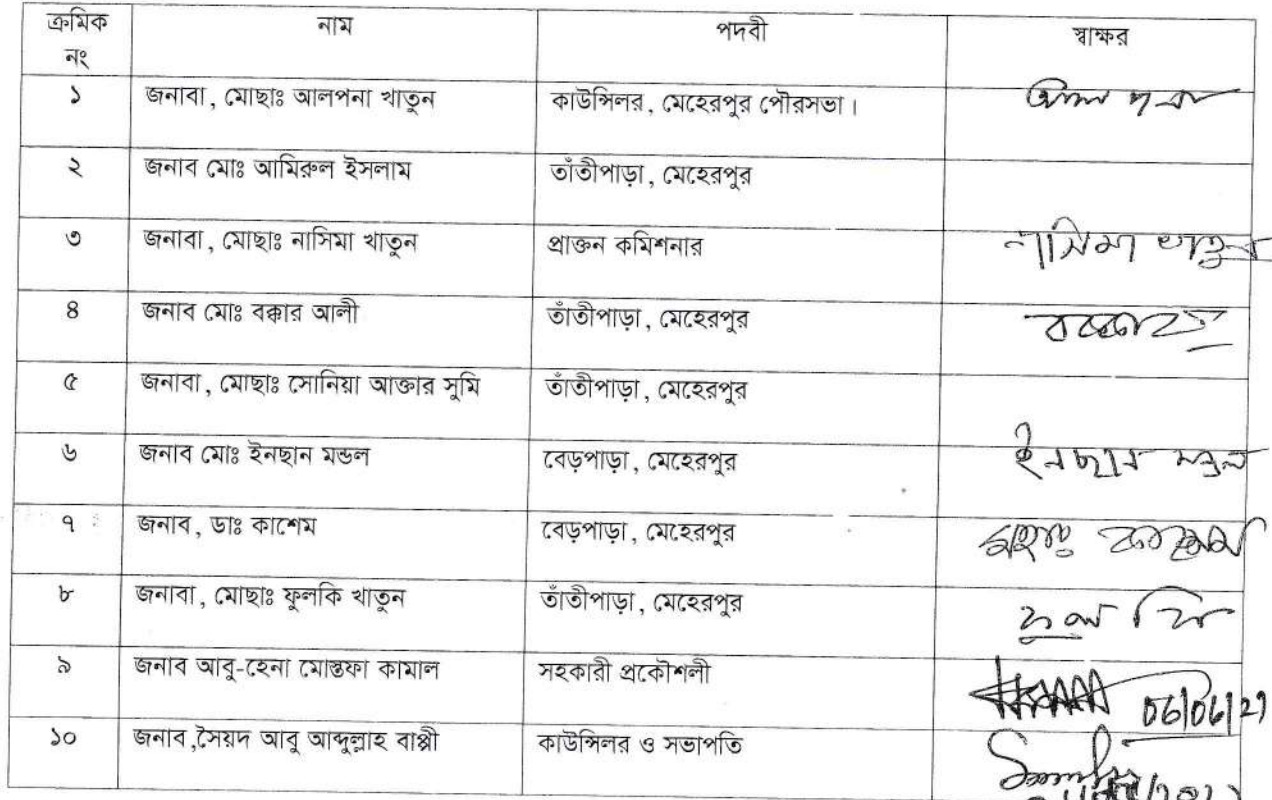 ক্রমিক নং নাম পদবী স্বাক্ষর
১ জনাবা, মোছাঃ আলপনা খাতুন কাউন্সিলর, মেহেরপুর পৌরসভা।
২ জনাব মোঃ আমিরুল ইসলাম তাঁতীপাড়া, মেহেরপুর
৩ জনাবা, মোছাঃ নাসিমা খাতুন প্রাক্তন কমিশনার নাসিমা খাতুন
৪ জনাব মোঃ বক্কার আলী তাঁতীপাড়া, মেহেরপুর
৫ জনাবা, মোছাঃ সোনিয়া আক্তার সুমি তাঁতীপাড়া, মেহেরপুর
৬ জনাব মোঃ ইনছান মন্ডল বেড়পাড়া, মেহেরপুর ইনছান
৭ জনাব, ডাঃ কাশেম বেড়পাড়া, মেহেরপুর
৮ জনাবা, মোছাঃ ফুলকি খাতুন তাঁতীপাড়া, মেহেরপুর ফুলকি
৯ জনাব আবু-হেনা মোস্তফা কামাল সহকারী প্রকৌশলী 06/06/21
১০ জনাব,সৈয়দ আবু আব্দুল্লাহ বাপ্পী কাউন্সিলর ও সভাপতি